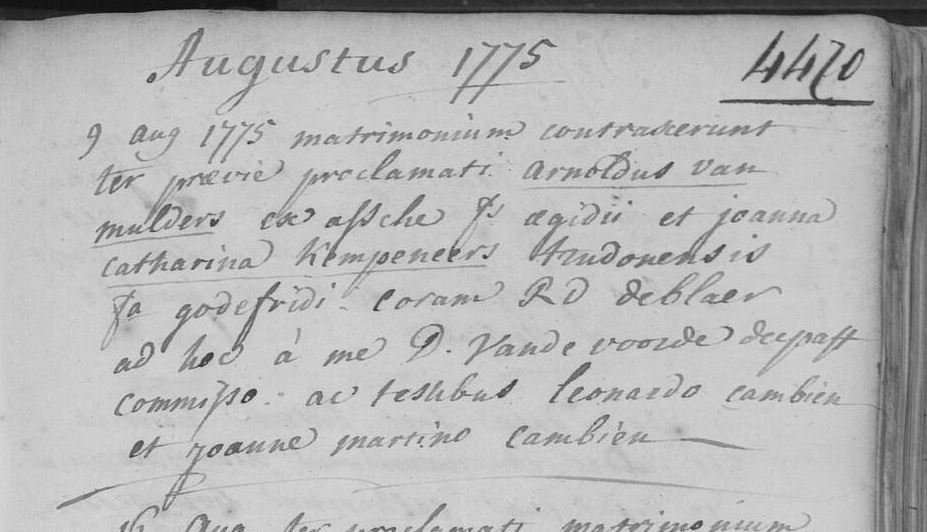 Augustus 1775
4470
9 aug 1775 matrimonium contraxerunt
ter prævie proclamati arnoldus van
mulders ex assche fs ægidii et joanna
catharina Kempeneers trudonensis
fa godefridi coram RD deblaer
ad hoc à me D. Vande voorde
commisso. ac testibus leonardo cambien
et joanne martino cambien
16 Aug ter proclamati matrimonium